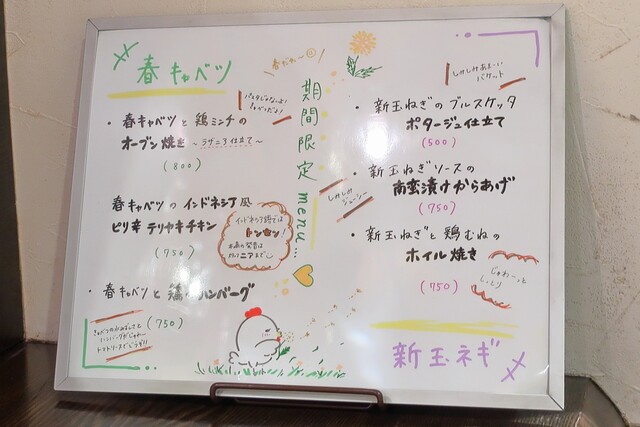 春キャベツ
春だねー
・春キャベツと鶏ミンチの
オーブン焼き 〜ラザニア仕立て〜
(800)
春キャベツのインドネシア風
ピリ辛テリヤキチキン
(750)
インドネシア語では
トンセン!
・春キャベツと鶏ハンバーグ
(750)
期間限定menu...
しみしみあまーい
バケット
・新玉ねぎのブルスケッタ
ポタージュ仕立て
(500)
・新玉ねぎソースの
南蛮漬けからあげ
(750)
しみしみ
ジューシー
・新玉ねぎと鶏むねの
ホイル焼き
(750)
じゅわーっと
しっとり
新玉ネギ